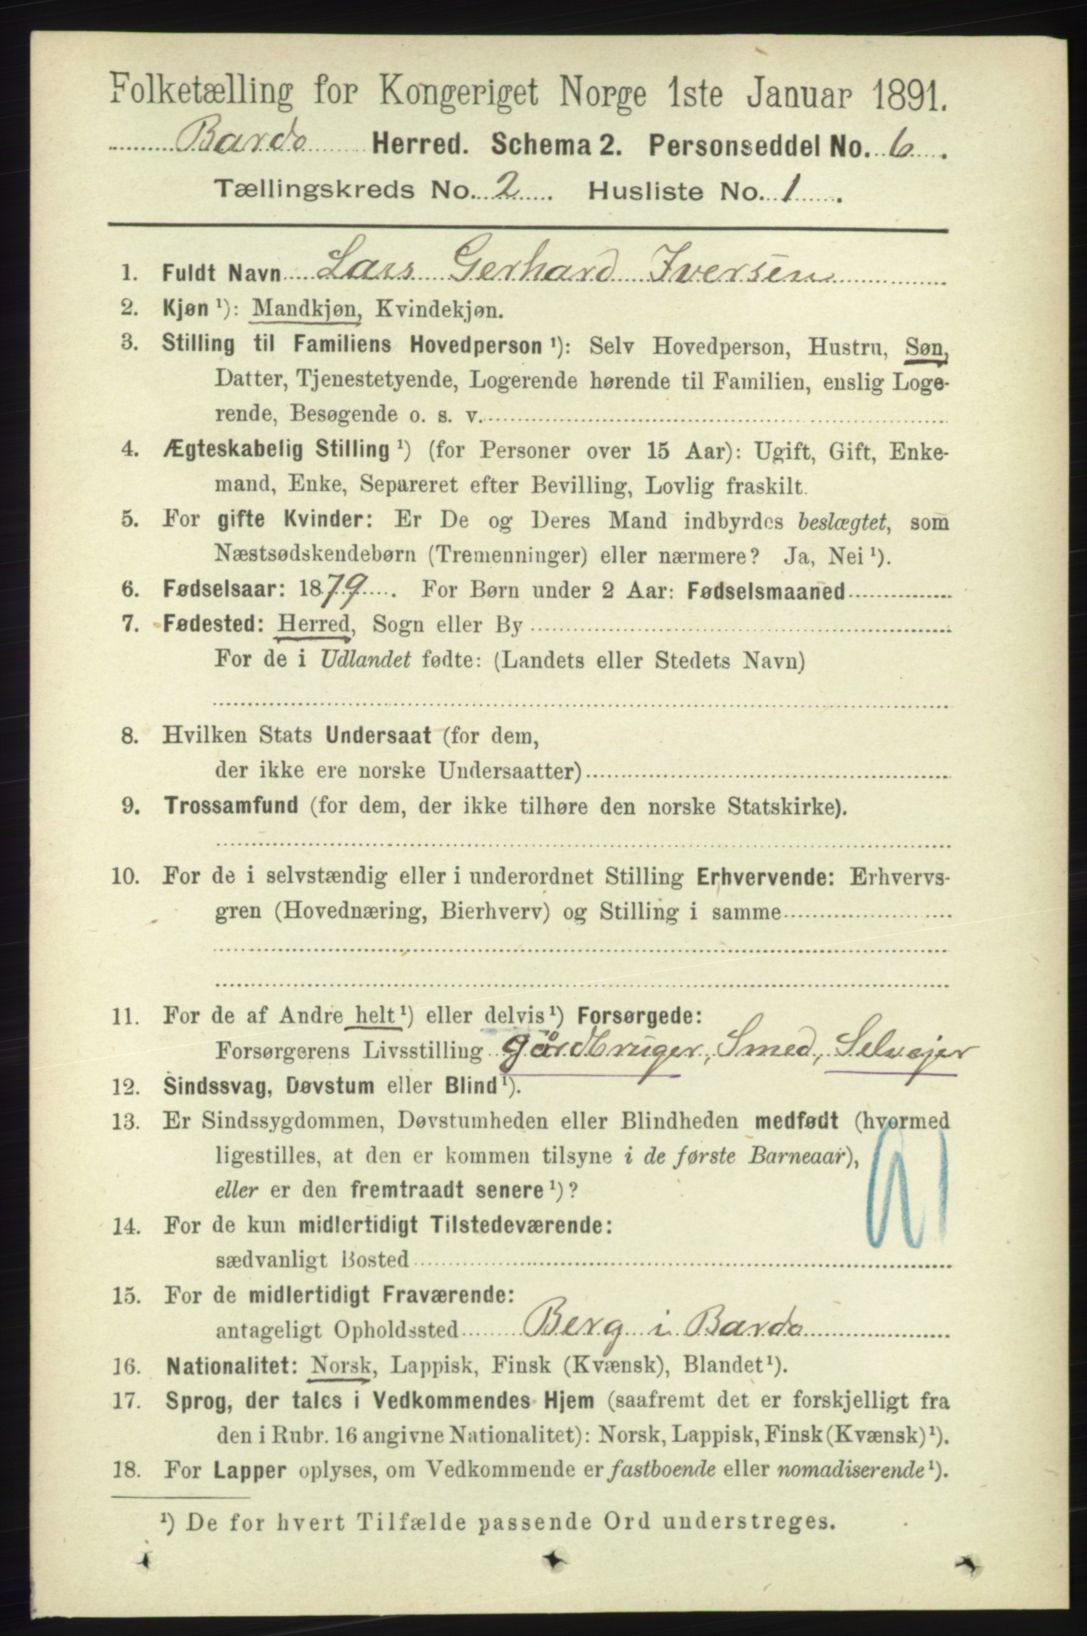 Folketælling for Kongeriget Norge 1ste Januar 1891.
Bardo Herred. Schema 2. Personseddel No. 6.
Tællingskreds No. 2. Husliste No. 1.
1. Fuldt Navn Lars Gerhard Iversen
2. Kjøn ¹): Mandkjøn, Kvindekjøn.
3. Stilling til Familiens Hovedperson ¹): Selv Hovedperson, Hustru, Søn,
Datter, Tjenestetyende, Logerende hørende til Familien, enslig Loge-
rende, Besøgende o. s. v.
4. Ægteskabelig Stilling ¹) (for Personer over 15 Aar): Ugift, Gift, Enke-
mand, Enke, Separeret efter Bevilling, Lovlig fraskilt.
5. For gifte Kvinder: Er De og Deres Mand indbyrdes beslægtet, som
Næstsødskendebørn (Tremenninger) eller nærmere? Ja, Nei ¹).
6. Fødselsaar: 1879. For Børn under 2 Aar: Fødselsmaaned
7. Fødested: Herred, Sogn eller By
For de i Udlandet fødte: (Landets eller Stedets Navn)
8. Hvilken Stats Undersaat (for dem,
der ikke ere norske Undersaatter)
9. Trossamfund (for dem, der ikke tilhøre den norske Statskirke).
10. For de i selvstændig eller i underordnet Stilling Erhvervende: Erhvervs-
gren (Hovednæring, Bierhverv) og Stilling i samme
11. For de af Andre helt ¹) eller delvis ¹) Forsørgede:
Forsørgerens Livsstilling Gårdbruger, Smed, Selvejer
12. Sindssvag, Døvstum eller Blind ¹).
13. Er Sindssygdommen, Døvstumheden eller Blindheden medfødt (hvormed
ligestilles, at den er kommen tilsyne i de første Barneaar),
eller er den fremtraadt senere ¹)?
14. For de kun midlertidigt Tilstedeværende:
sædvanligt Bosted
15. For de midlertidigt Fraværende:
antageligt Opholdssted Berg i Bardo
16. Nationalitet: Norsk, Lappisk, Finsk (Kvænsk), Blandet ¹).
17. Sprog, der tales i Vedkommendes Hjem (saafremt det er forskjelligt fra
den i Rubr. 16 angivne Nationalitet): Norsk, Lappisk, Finsk (Kvænsk) ¹).
18. For Lapper oplyses, om Vedkommende er fastboende eller nomadiserende ¹).
¹) De for hvert Tilfælde passende Ord understreges.